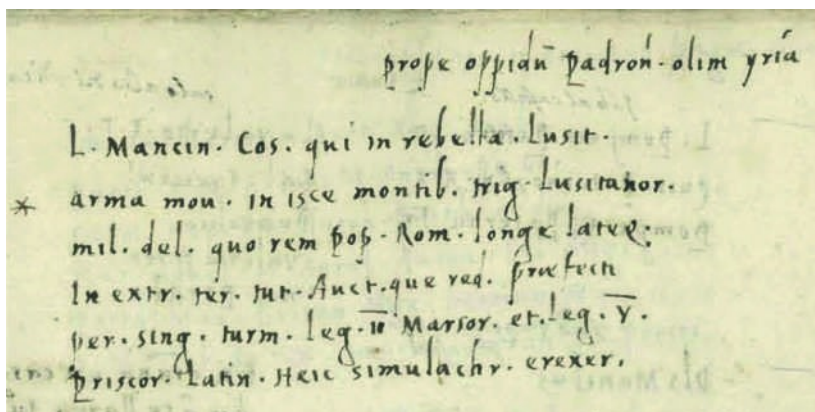 prope oppidū padroń · olim yria
L · Mancin · Cos · qui in rebella · Lusit ·
* arma mou · in isce montib · trig · Lusitanor ·
mil · del · quo rem pop · Rom · longe lateq;
In extr · ter · tut · Auct · que red · præfecti
per · sing · turm · leg · II̅ Marsor · et · leg · V̅ ·
priscor · Latin · Heic simulachr · erexer ·